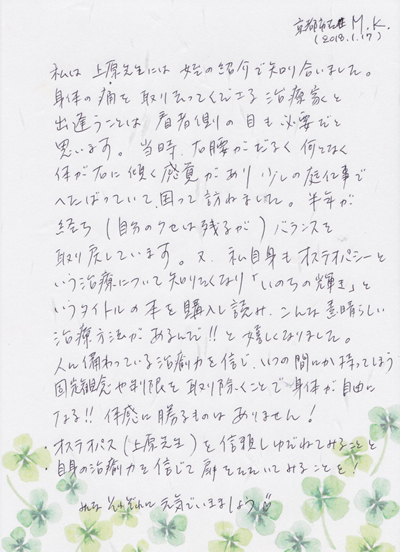 京都市在住 M.K.
(2018.1.17)
私は上原先生には 姪の紹介で知り合いました。
身体の痛を取り去ってくださる治療家と
出逢うことは 看者側の目も必要だと
思います。当時、右腰がだるく 何となく
体が右に傾く感覚があり 少しの庭仕事で
へたばっていて困って訪ねました。半年が
経ち(自分のクセは残るが)バランスを
取り戻しています。又、私自身もオステオパシーと
いう治療について知りたくなり「いのちの輝き」と
いうタイトルの本を購入し読み、こんな素晴らしい
治療方法があるんだ!!と嬉しくなりました。
人に備わっている治癒力を信じ、いつの間にか持ってしまう
固定観念や制限を取り除くことで身体が自由に
なる!! 体感に勝るものはありません!
・オステオパス(上原先生)を信頼しゆだねてみることと
・自身の治癒力を信じて扉をたたいてみることを!
みな それぞれに元気でいましょう